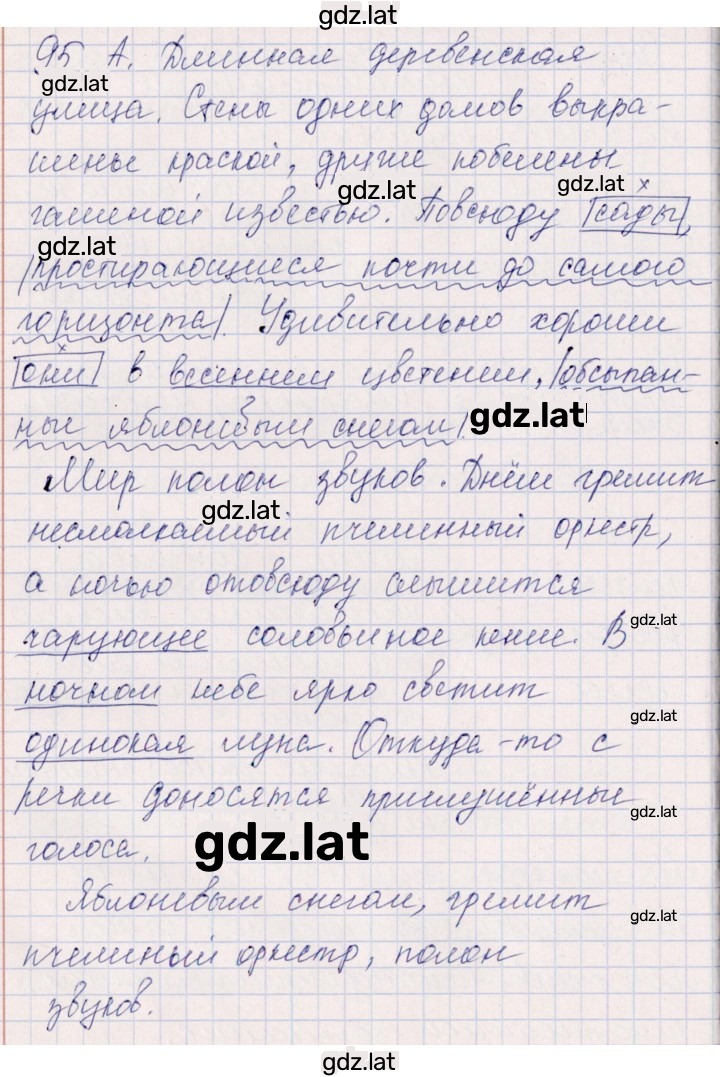 gdz.lat
95 А. Длинная деревенская
gdz.lat
улица. Стены одних домов выкра-
шены краской, другие побелены
gdz.lat
gdz.lat
гашеной известью. Повсюду |сады|,
gdz.lat
|простирающиеся почти до самого
горизонта|. Удивительно хороши
|они| в весеннем цветении, |обсыпан-
ные яблоневым снегом|.
gdz.lat
Мир полон звуков. Днём гремит
gdz.lat
несмолкаемый пчелинный оркестр,
а ночью отовсюду слышится
чарующее соловьиное пение. В
gdz.lat
ночном небе ярко светит
gdz.lat
одинокая луна. Откуда-то с
речки доносятся приглушённые
gdz.lat
голоса.
gdz.lat
Яблоневым снегом, гремит
gdz.lat
пчелиный оркестр, полон
звуков.
gdz.lat